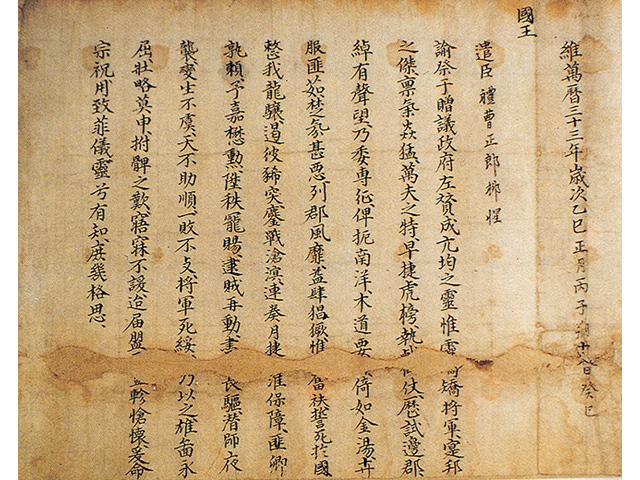 維萬曆三十三年歲次乙巳正月丙子朔十八日癸巳
國王
遣臣禮曹正郎柳惺
諭祭于贈議政府左贊成元均之靈惟靈矯矯將軍寔邦
之傑禀氣猋猛萬夫之特早捷虎榜執仗歷試邊郡
綽有聲望乃委專征俾扼南洋木道要倚如金湯卉
服匪茹楚氛甚惡列郡風靡益肆猖獗惟奮袂誓死於國
整我龍驤遏彼豨突鏖戰滄溟連奏月捷淮保障匪卿
孰賴予嘉懋勳陞秩寵賜逮賊再動長驅耆師夜
襲変生不虞天不助順一敗不支將軍死綏乃以之雄啚永
屈壯略莫申拊髀之歎寤寐不諼迨屆盟軫愴懷爰命
宗祝用致菲儀靈兮有知庶幾格思、